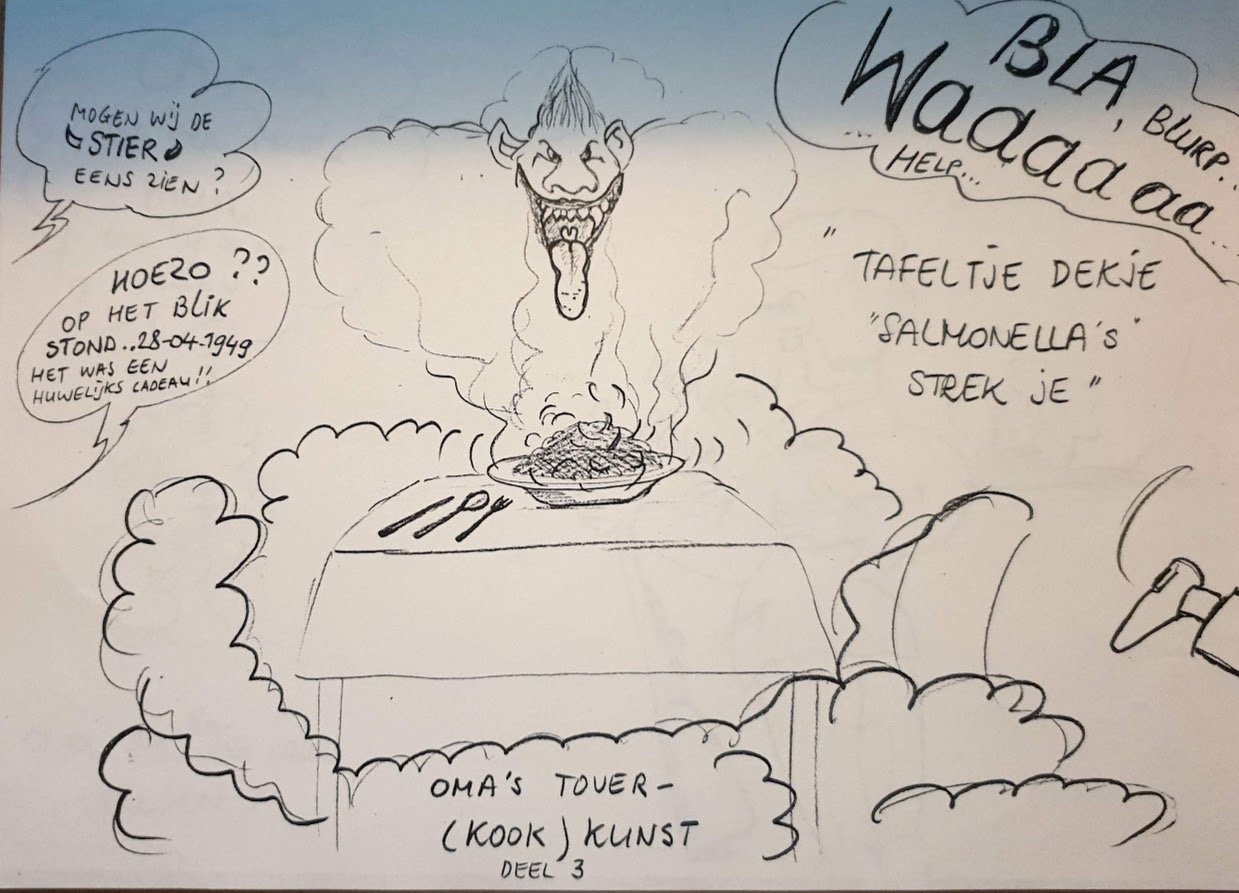 MOGEN WIJ DE
STIER
EENS ZIEN?
HOEZO ??
OP HET BLIK
STOND..28-04-1949
HET WAS EEN
HUWELIJKS CADEAU!!
BLA,
BLURP..
Waaaaaa...
...HELP...
" TAFELTJE DEKJE
"SALMONELLA'S"
STREK JE "
OMA'S TOVER-
(KOOK) KUNST
DEEL 3